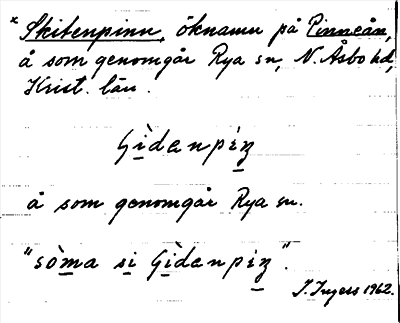 × Skitenpinn, öknamn på Pinneån,
å som genomgår Rya sn, N. Åsbo hd,
Krist. län.
Gìdenpiṉ
å som genomgår Rya sn.
"sòma si Gìdenpiṉ".
I. Ingers 1962.